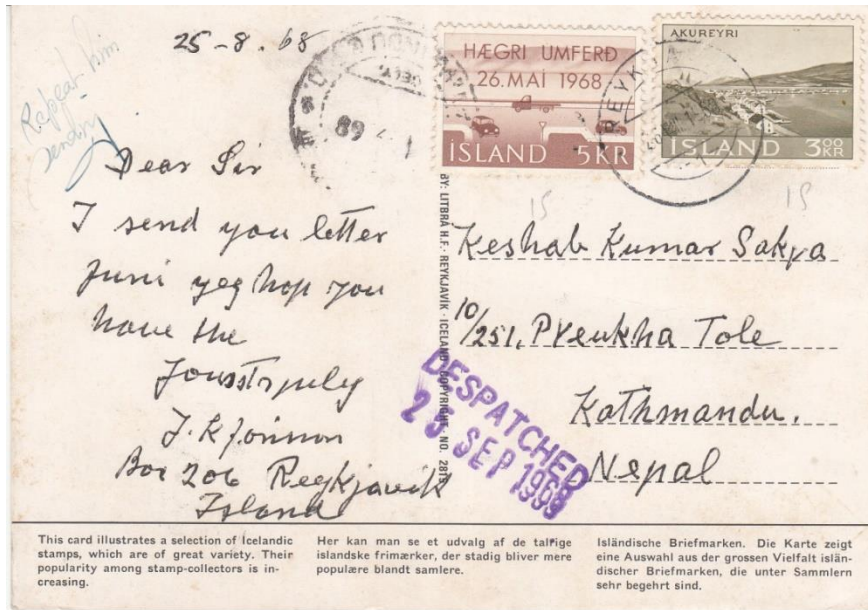 25-8.68
HÆGRI UMFERÐ
26.MAÍ 1968
ÍSLAND 5KR
AKUREYRI
ÍSLAND 3.00 KR
REYKJA
68
sending
Dear Sir
I send you letter
Juni yeg hop you
have the
J.K Jonsson
Box 206 Reykjavik
Island
15
15
BY: LITBRÁ H.F. - REYKJAVÍK - ICELAND - COPYRIGHT - NO. 281
Keshab Kumar Sakya
10/251, Pyeukha Tole
Kathmandu.
Nepal
DESPATCHED
25 SEP 1968
This card illustrates a selection of Icelandic
stamps, which are of great variety. Their
popularity among stamp-collectors is in-
creasing.
Her kan man se et udvalg af de talrige
islandske frimærker, der stadig bliver mere
populære blandt samlere.
Isländische Briefmarken. Die Karte zeigt
eine Auswahl aus der grossen Vielfalt islän-
discher Briefmarken, die unter Sammlern
sehr begehrt sind.